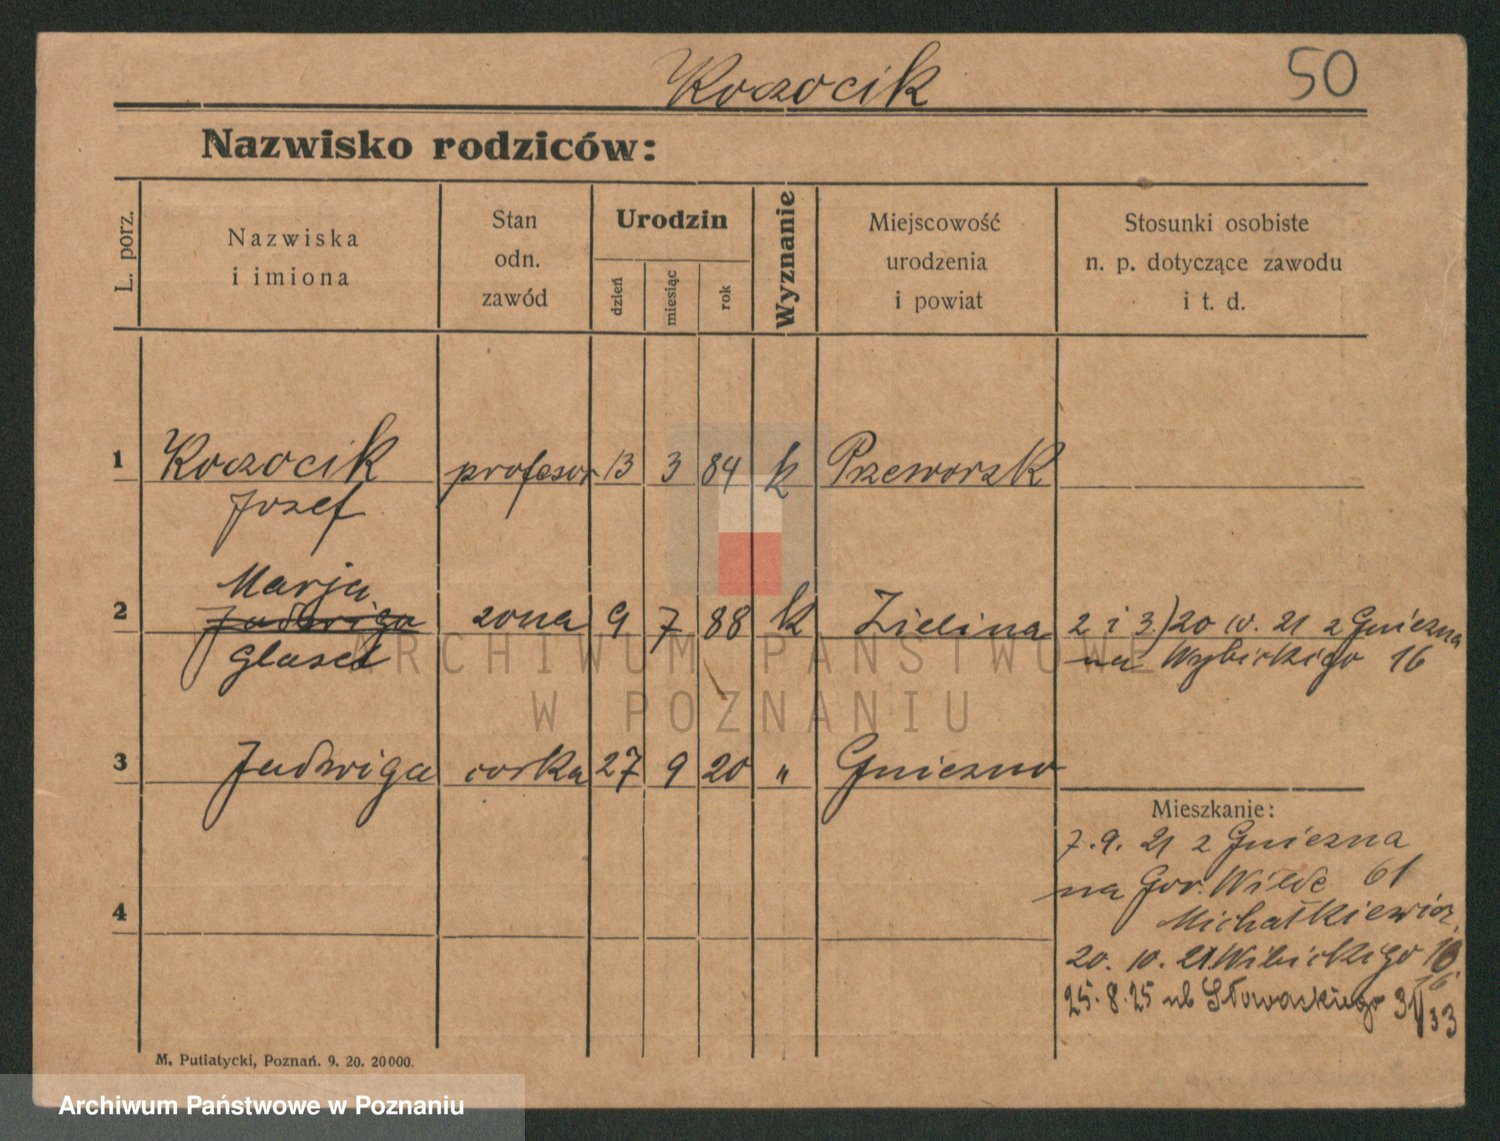 Koczocik
50
Nazwisko rodziców:
L. porz.
Nazwiska
i imiona
Stan
odn.
zawód
Urodzin
dzień
miesiąc
rok
Wyznanie
Miejscowość
urodzenia
i powiat
Stosunki osobiste
n. p. dotyczące zawodu
i t. d.
1 Koczocik profesor 13 3 84 k Przeworsk
Jozef
Marja
2 Jadwiga zona 9 7 88 k Zielina 2 i 3) 20 10. 21 z Gniezna
Glaser na Wybickiego 16
3 Jadwiga corka 27 9 20 " Gniezno
Mieszkanie:
7. 9. 21 z Gniezna
na Gor. Wilde 61
4
Michałkiewicz
20. 10. 21. Wibickiego 16
16
25. 8. 25 ul Słowackiego 31/33
M. Putiatycki, Poznań. 9. 20. 20000.
ARCHIWUM PAŃSTWOWE
W POZNANIU
Archiwum Państwowe w Poznaniu